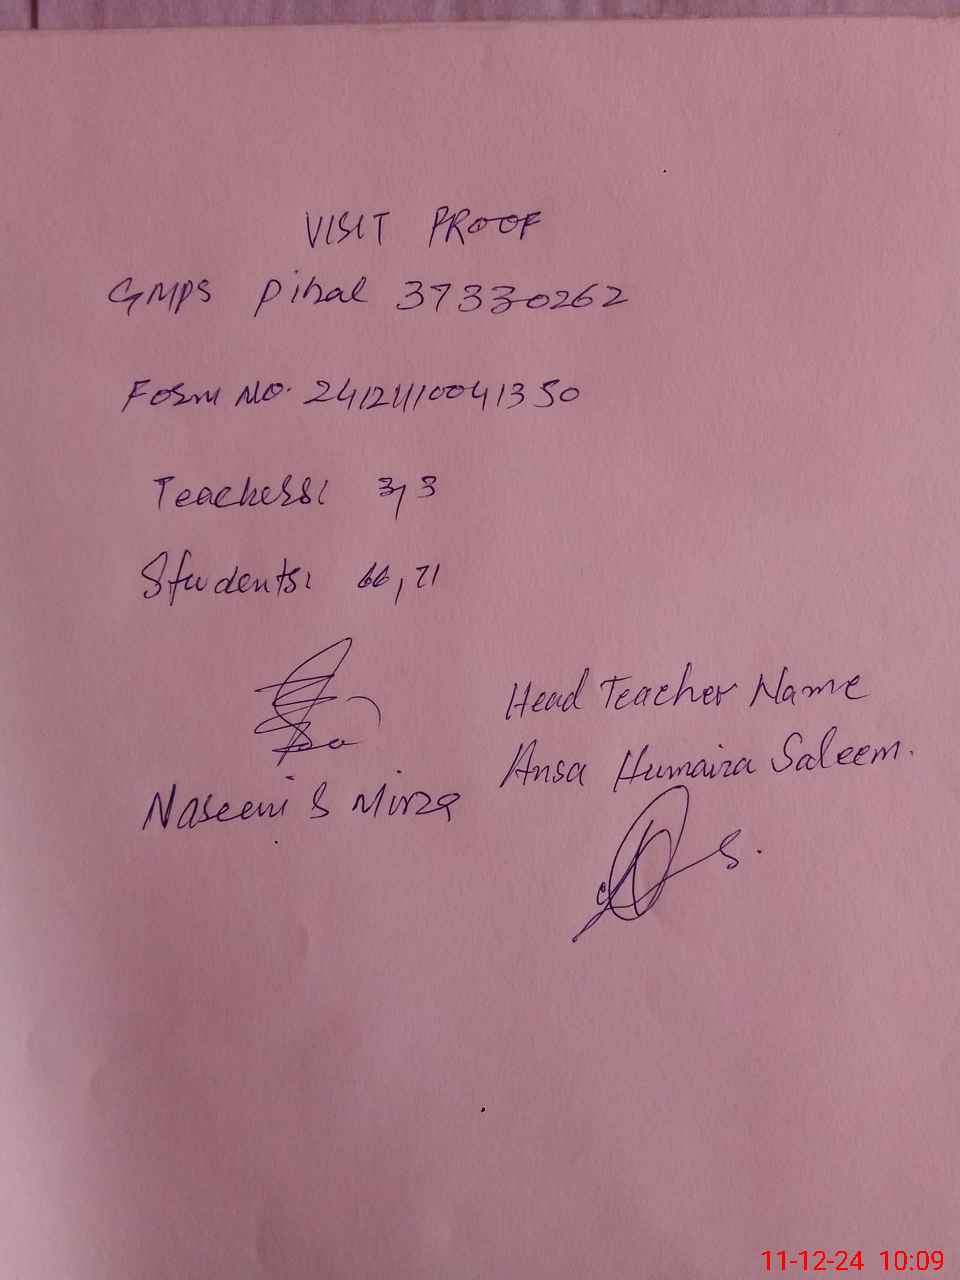 VISIT PROOF
GMPS Pihal 37330262
Form No. 24121110041350
Teachers: 3,3
Students: 66,71
Head Teacher Name
Ansa Humaira Saleem.
Naseem S Mirza
S.
11-12-24 10:09